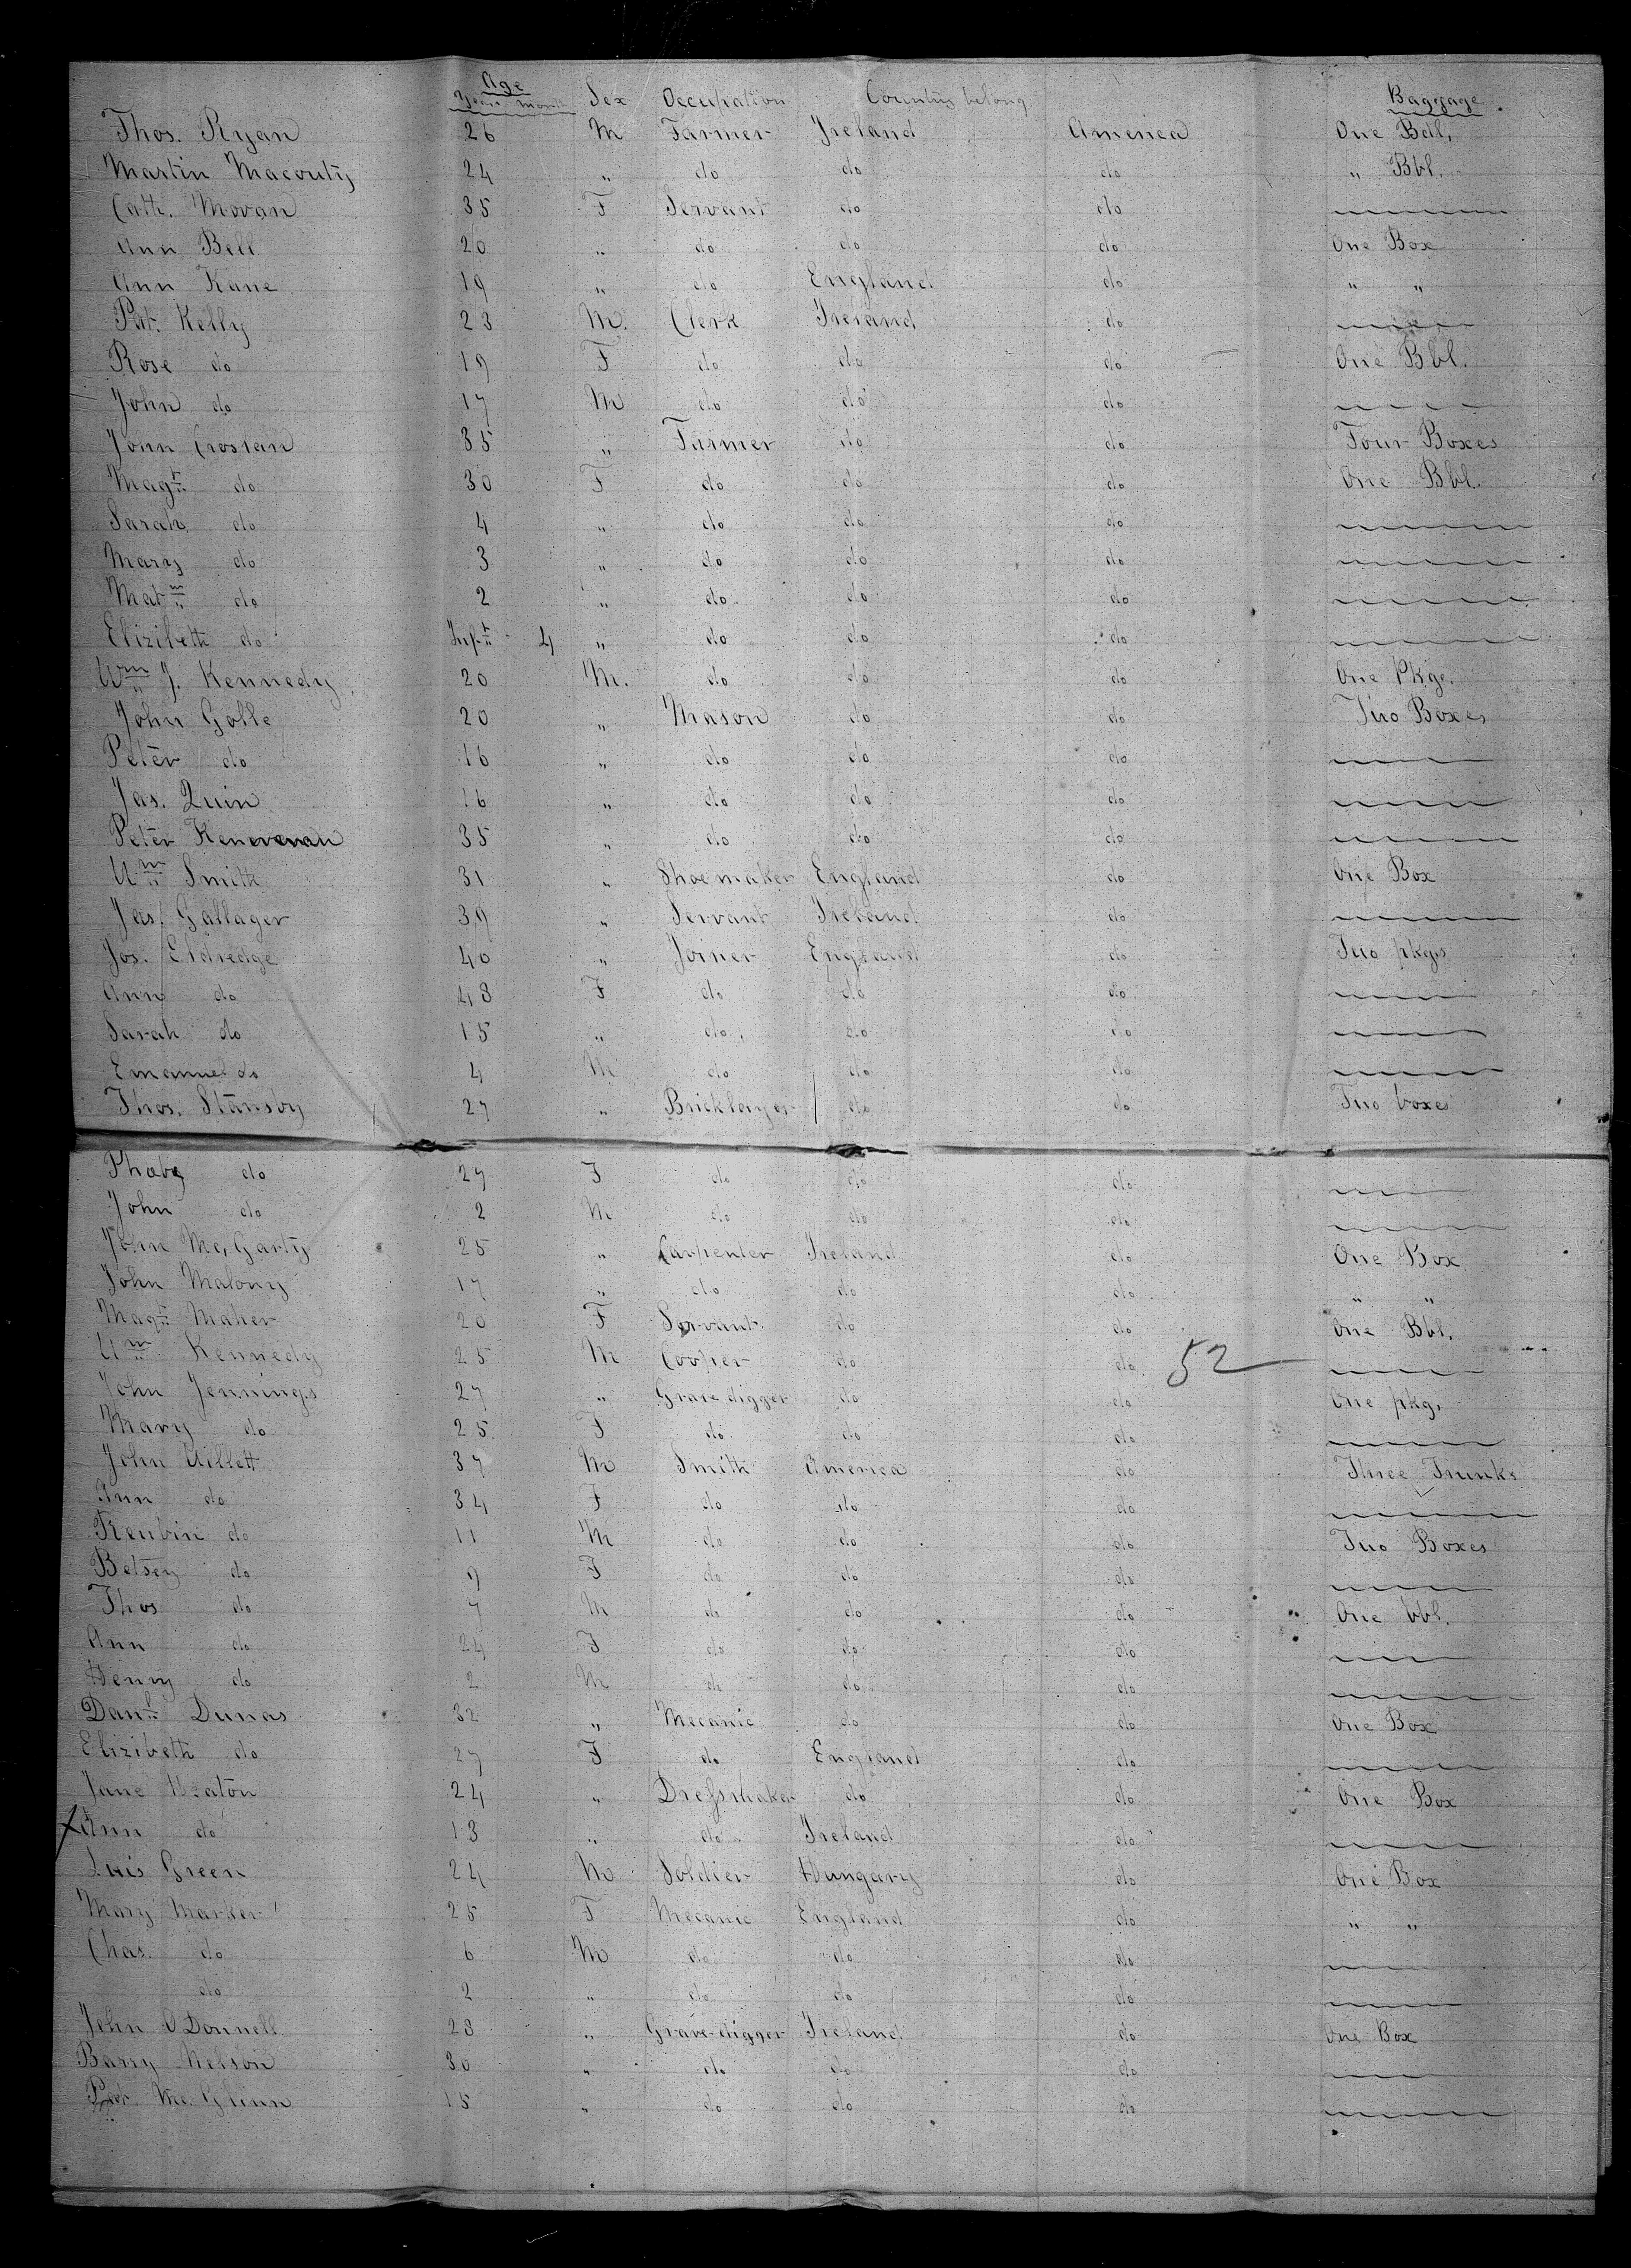 Age
Years Month Sex Occupation Country belong Baggage
Thos. Ryan 26 M Farmer Ireland America One Bdl.
Martin Macouty 24 " do do do " Bbl.
Cath. Moran 35 F Servant do do
Ann Bell 20 " do do do One Box
Ann Kane 19 " do England do " "
Pat. Kelly 23 M. Clerk Ireland do
Rose do 19 F do do do One Bbl.
John do 17 M do do do
John Crosian 35 " Farmer do do Four Boxes
Magt do 30 F do do do One Bbl.
Sarah do 4 " do do do
Mary do 3 " do do do
do 2 " do do do
Elizibeth do Inft 4 " do do do
Wm J. Kennedy 20 M. do do do One Pkge.
John Golle 20 " Mason do do Two Boxes
Peter do 16 " do do do
Jas. Quin 16 " do do do
Peter 35 " do do do
Wm Smith 31 " Shoemaker England do One Box
Jas. Gallager 39 " Servant Ireland do
Jos. Eldredge 40 " Joiner England do Two pkgs
Ann do 48 F do do do
Sarah do 15 " do do do
Emanuel do 4 M do do do
Thos. Stansby 27 " Bricklayer do do Two boxes
Phaby do 27 F do do do
John do 2 M do do do
John McGarty 25 " Carpenter Ireland do One Box
John Malony 17 " do do do " "
Magt Maher 20 F Servant do do One Bbl.
Wm Kennedy 25 M Cooper do do 52
John Jennings 27 " Grave digger do do One pkg.
Mary do 25 F do do do
John Uillett 37 M Smith America do Three Trunks
Ann do 34 F do do do
Reubin do 11 M do do do Two Boxes
Betsey do 9 F do do do
Thos do 7 M do do do One bbl.
Ann do 24 F do do do
Henry do 2 M do do do
Danl Dunas 32 " Mecanic do do One Box
Elizibeth do 27 F do England do
Jane Heaton 24 " Dressmaker do do One Box
Ann do 13 " do Ireland do
Luis Green 24 M Soldier Hungary do One Box
Mary Marker 25 F Mecanic England do " "
Chas. do 6 M do do do
do 2 " do do do
John O'Donnell 23 " Grave-digger Ireland do One Box
Barry Nelson 30 " do do do
Pat. Mc. Glinn 15 " do do do